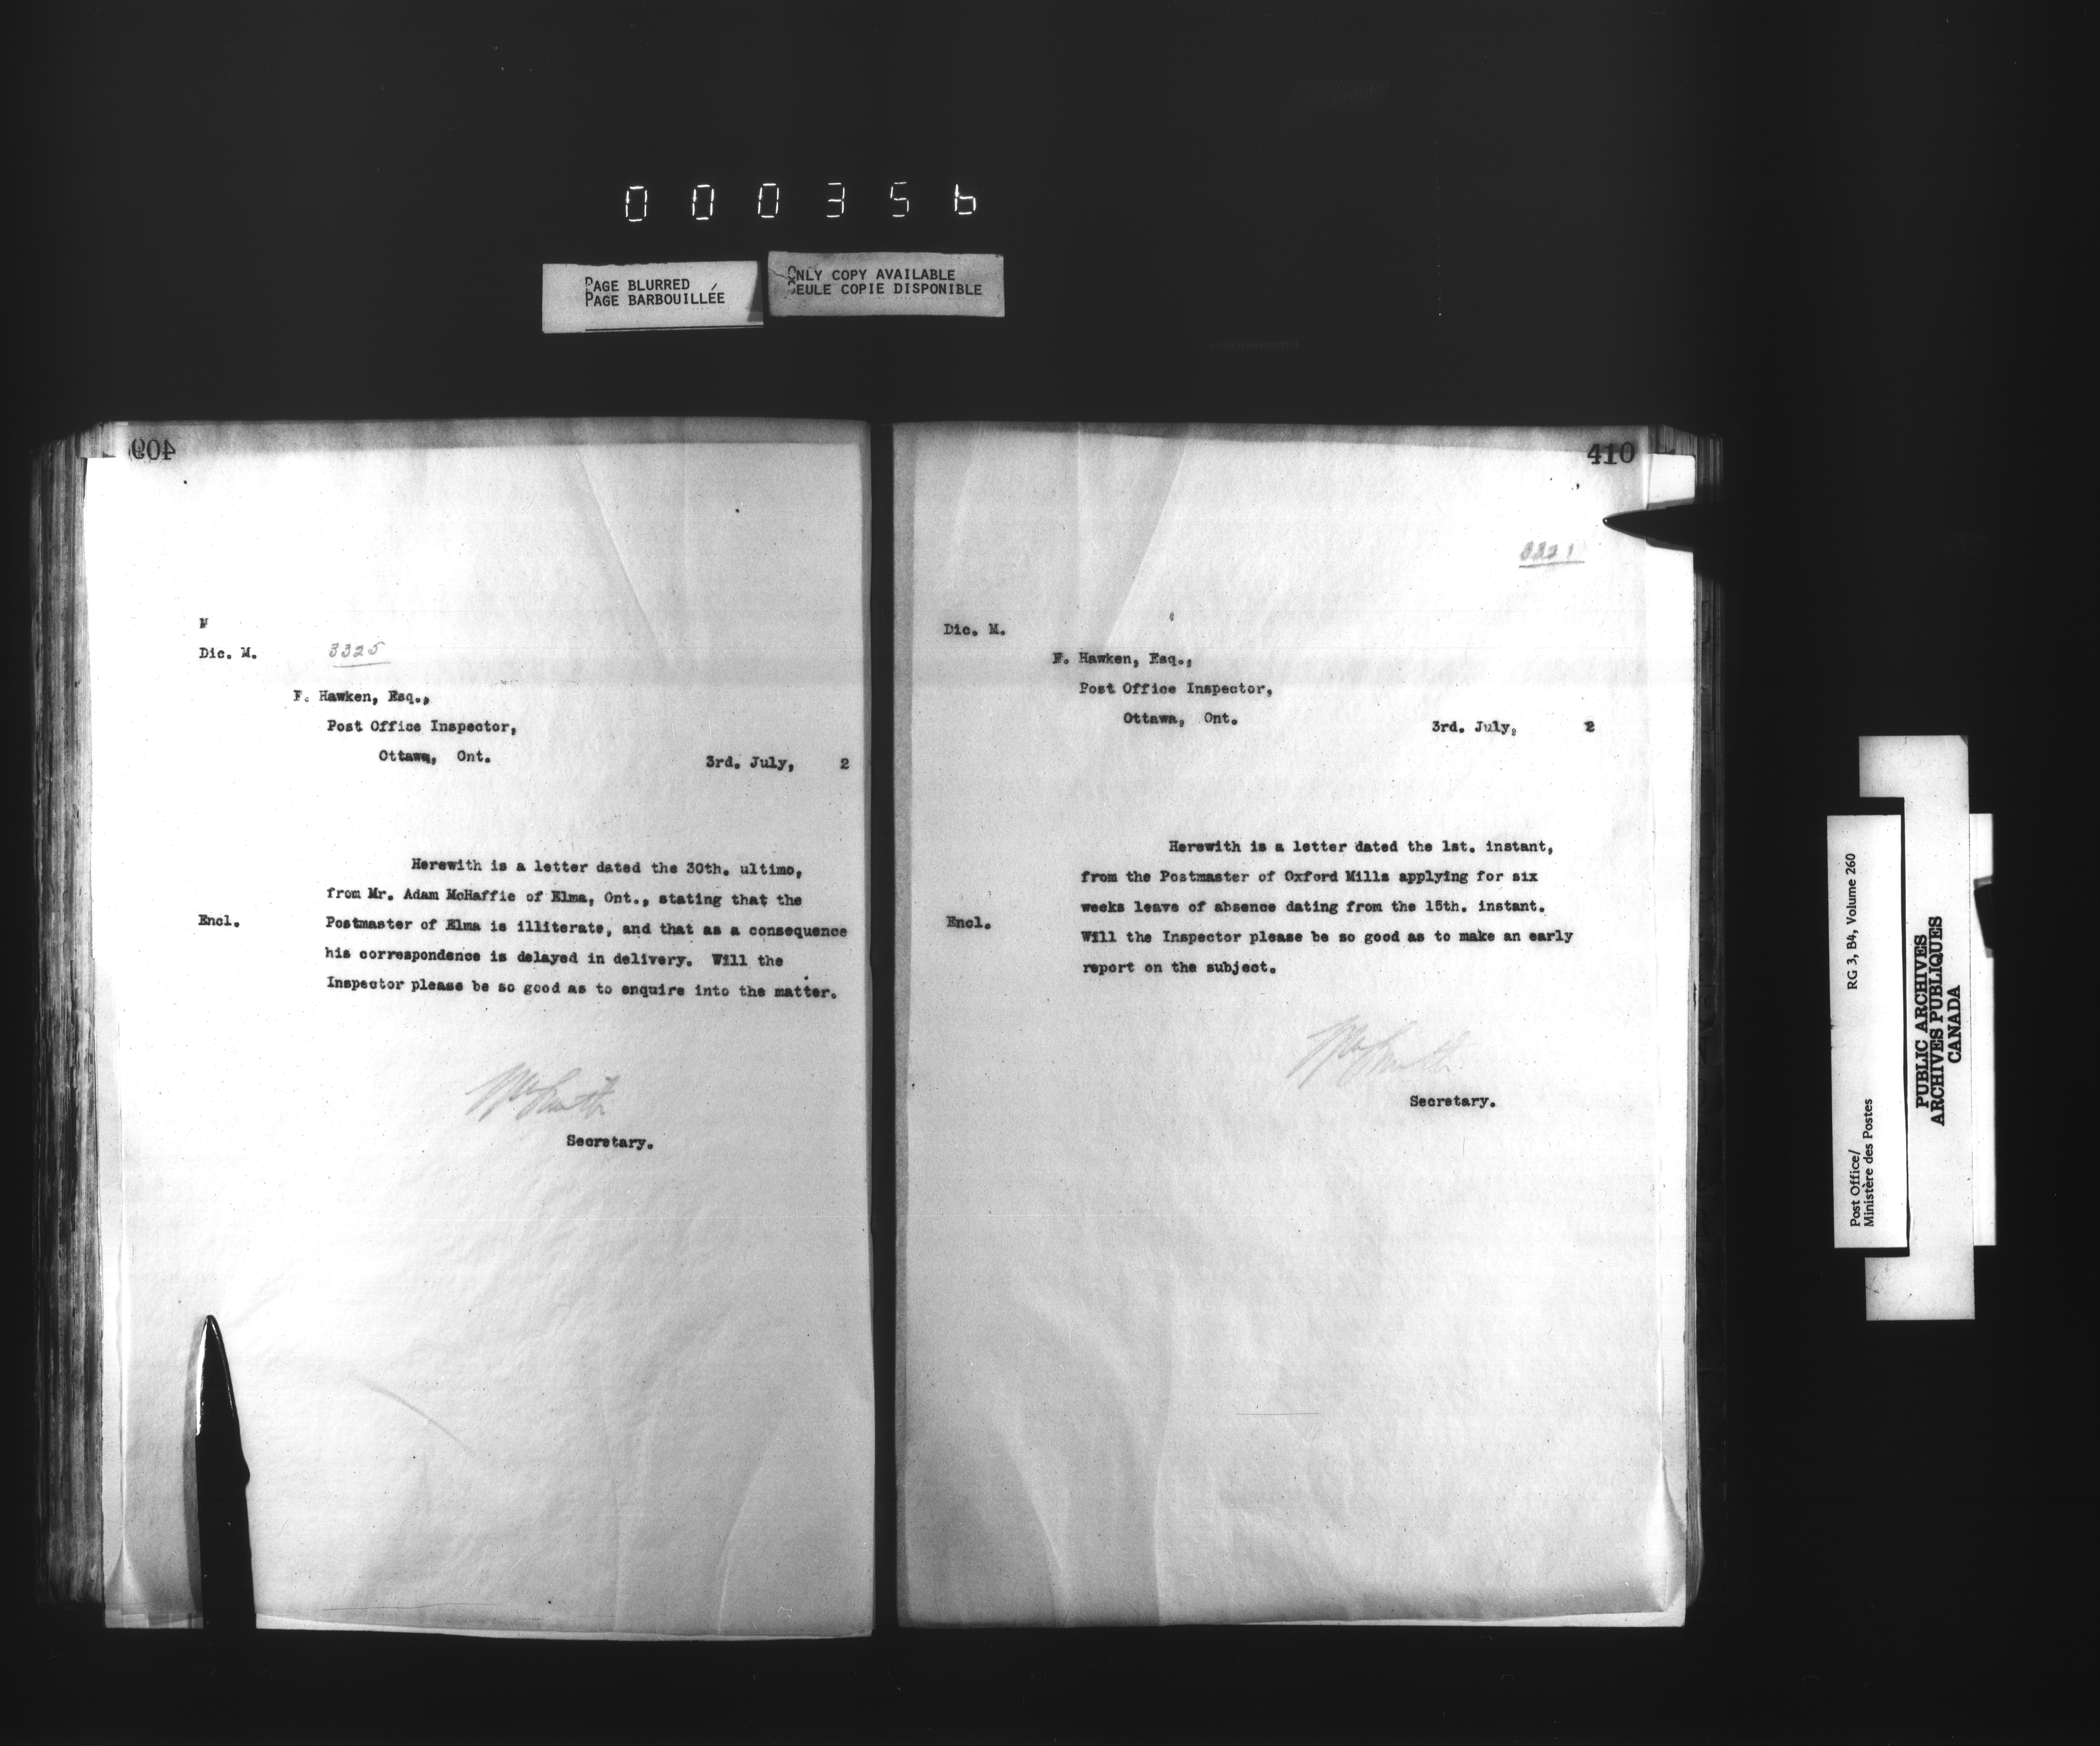 000356
PAGE BLURRED
PAGE BARBOUILLÉE
ONLY COPY AVAILABLE
SEULE COPIE DISPONIBLE
409
M
Dic. M.
3325
F. Hawken, Esq.,
Post Office Inspector,
Ottawa, Ont.
3rd. July, 2
Herewith is a letter dated the 30th. ultimo,
from Mr. Adam McHaffie of Elma, Ont., stating that the
Encl.
Postmaster of Elma is illiterate, and that as a consequence
his correspondence is delayed in delivery. Will the
Inspector please be so good as to enquire into the matter.
Wm Smith
Secretary.
410
3321
Dic. M.
F. Hawken, Esq.,
Post Office Inspector,
Ottawa, Ont.
3rd. July, 2
Herewith is a letter dated the 1st. instant,
from the Postmaster of Oxford Mills applying for six
weeks leave of absence dating from the 15th. instant.
Encl.
Will the Inspector please be so good as to make an early
report on the subject.
Wm Smith
Secretary.
Post Office/
Ministère des Postes
RG 3, B4, Volume 260
PUBLIC ARCHIVES
ARCHIVES PUBLIQUES
CANADA